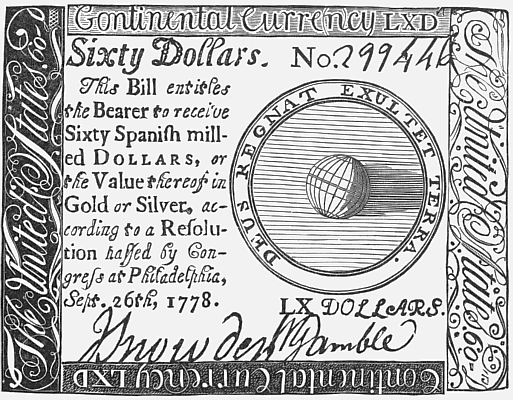 Continental Currency LXD
Sixty Dollars. No. 299446
This Bill entitles
the Bearer to receive
Sixty Spanish mill-
ed DOLLARS, or
the Value thereof in
Gold or Silver, ac-
cording to a Resolu-
tion passed by Con-
gress at Philadelphia,
Sept. 26th, 1778.
DEUS REGNAT EXULTET TERRA.
LX DOLLARS.
Snowden Gamble
The United States. 60-
The United States. 60-
Continental Currency LXD